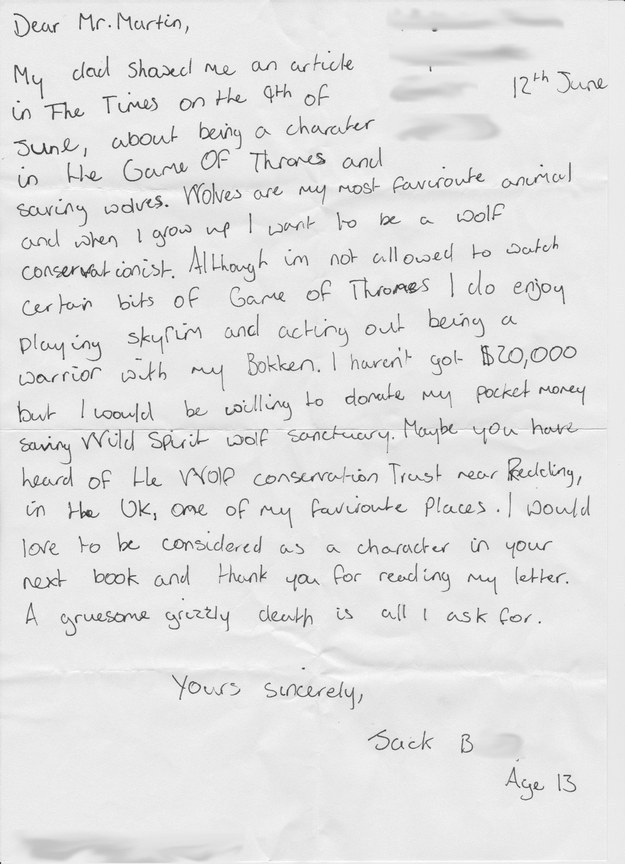 Dear Mr. Martin,
12th June
My dad shased me an article
in The Times on the 9th of
June, about being a charater
in the Game Of Thrones and
saving wolves. Wolves are my most faviroute animal
and when I grow up I want to be a wolf
conservationist. Although im not allowed to watch
certain bits of Game of Thrones I do enjoy
playing skyrim and acting out being a
warrior with my Bokken. I haven't got $20,000
but I would be willing to donate my pocket money
saving Wild Spirit wolf sanctuary. Maybe you have
heard of the Wolf conservation Trust near Redding,
in the UK, one of my faviroute Places. I would
love to be considered as a character in your
next book and thank you for reading my letter.
A gruesome grizzly death is all I ask for.
Yours sincerely,
Jack B
Age 13